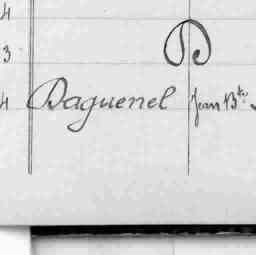 4
B
3
4 Daguenel Jean Bte